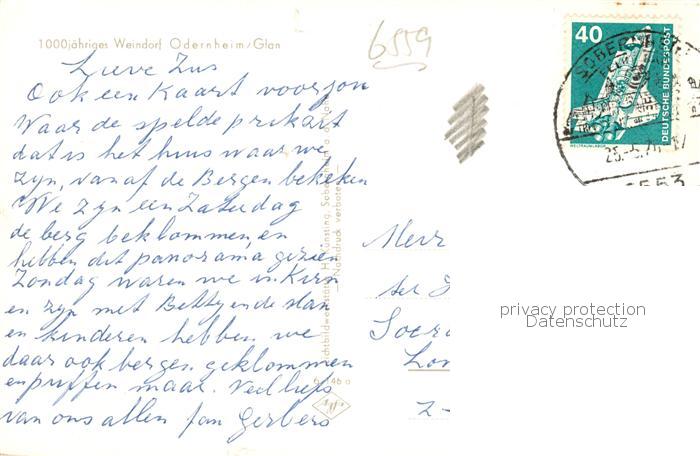 1000jähriges Weindorf Odernheim/Glan
6559
Lieve Zus
Ook een Kaart voor jou
Waar de spelde prikart
dat is het huis waar we
zyn, vanaf de Bergen bekeken
We zyn een Zaturdag
de berg beklommen, en
hebben dit panorama gezien
Zondag waren we in Kirn
en zyn met Betty en de man
en kinderen hebben we
daar ook bergen geklommen
en puffen maar. Veel liefs
van ons allen Jan Gerbers
Nachdruck verboten
40
DEUTSCHE BUNDESPOST
WELTRAUMLABOR
6553
Mevr
Lon
Z-
privacy protection
Datenschutz